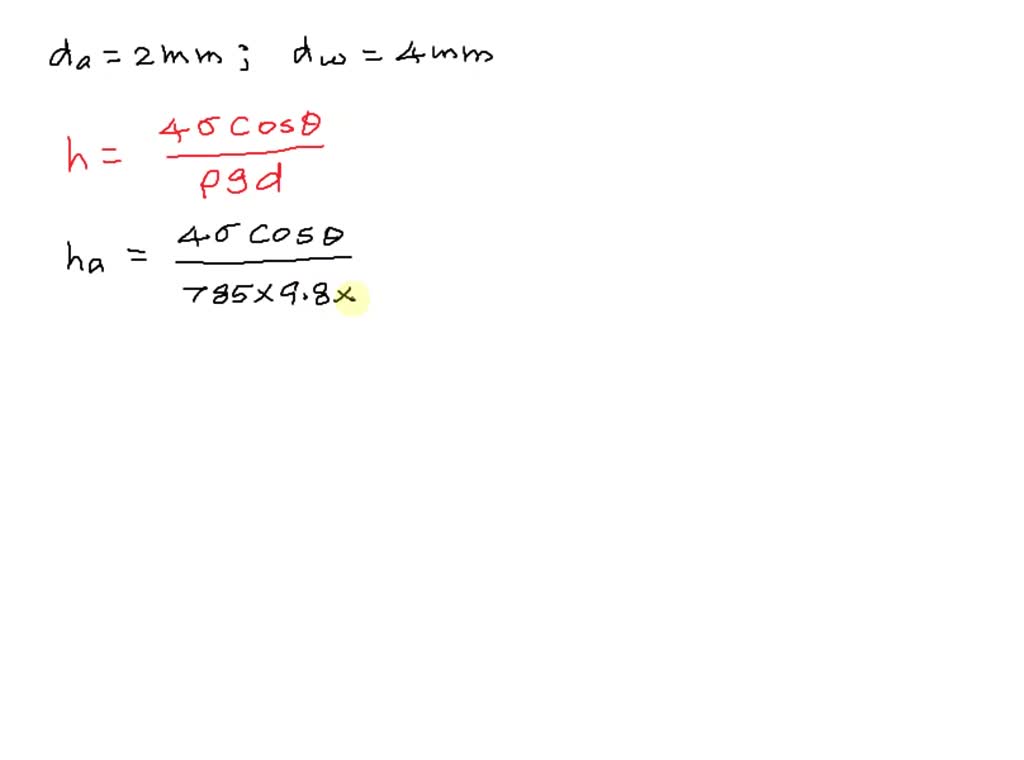 da = 2mm; dw = 4mm
h = 4σcosθ / ρgd
ha = 4σcosθ / 785×9.8×